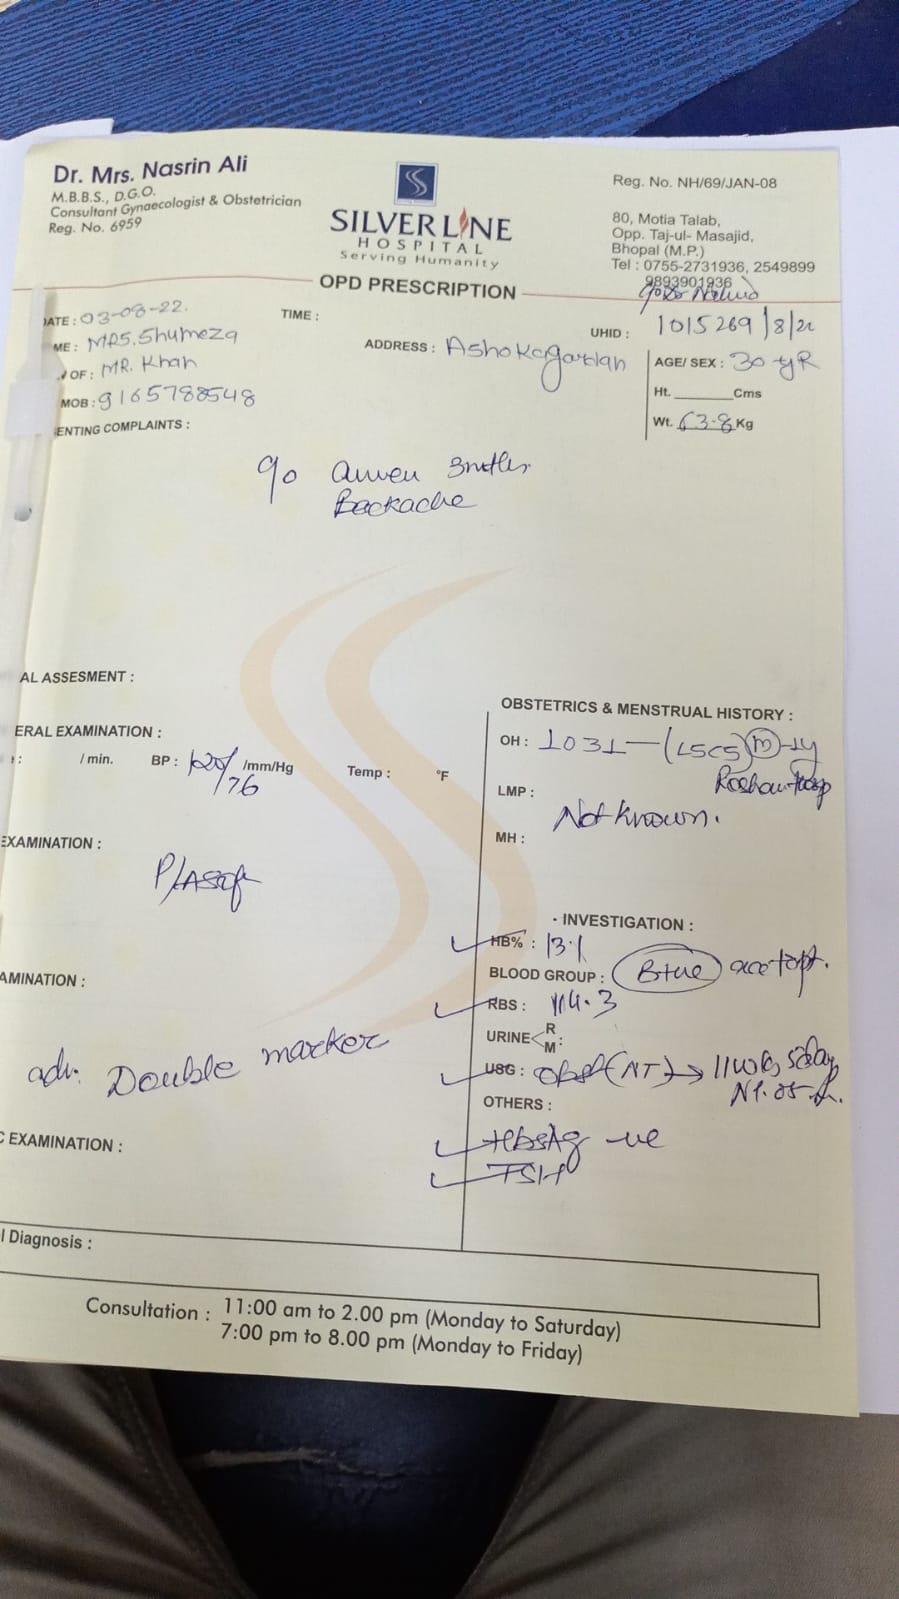 Dr. Mrs. Nasrin Ali
M.B.B.S., D.G.O.
Consultant Gynaecologist & Obstetrician
Reg. No. 6959
SILVER LINE
HOSPITAL
Serving Humanity
Reg. No. NH/69/JAN-08
80, Motia Talab,
Opp. Taj-ul- Masajid,
Bhopal (M.P.)
Tel : 0755-2731936, 2549899
9893901936
OPD PRESCRIPTION
DATE : 03-08-22.
TIME :
UHID : 1015269/8/22
ME : MRS. Shumeza
ADDRESS : Ashokagardan
AGE/ SEX : 30 yR
OF : MR. Khan
Ht. Cms
MOB : 9165788548
Wt. 63.8 Kg
ENTING COMPLAINTS :
Backache
AL ASSESMENT :
OBSTETRICS & MENSTRUAL HISTORY :
ERAL EXAMINATION :
OH : (LSCS)
: / min. BP : 120/76 /mm/Hg Temp : °F
LMP :
Not known.
MH :
EXAMINATION :
P/A Soft
• INVESTIGATION :
HB% : 13.1
BLOOD GROUP : B+ve
AMINATION :
RBS : 114.3
URINE < R M :
adv. Double marker
USG : (NT) → 11wk 5day
OTHERS :
HbsAg -ve
C EXAMINATION :
TSH
l Diagnosis :
Consultation : 11:00 am to 2.00 pm (Monday to Saturday)
7:00 pm to 8.00 pm (Monday to Friday)